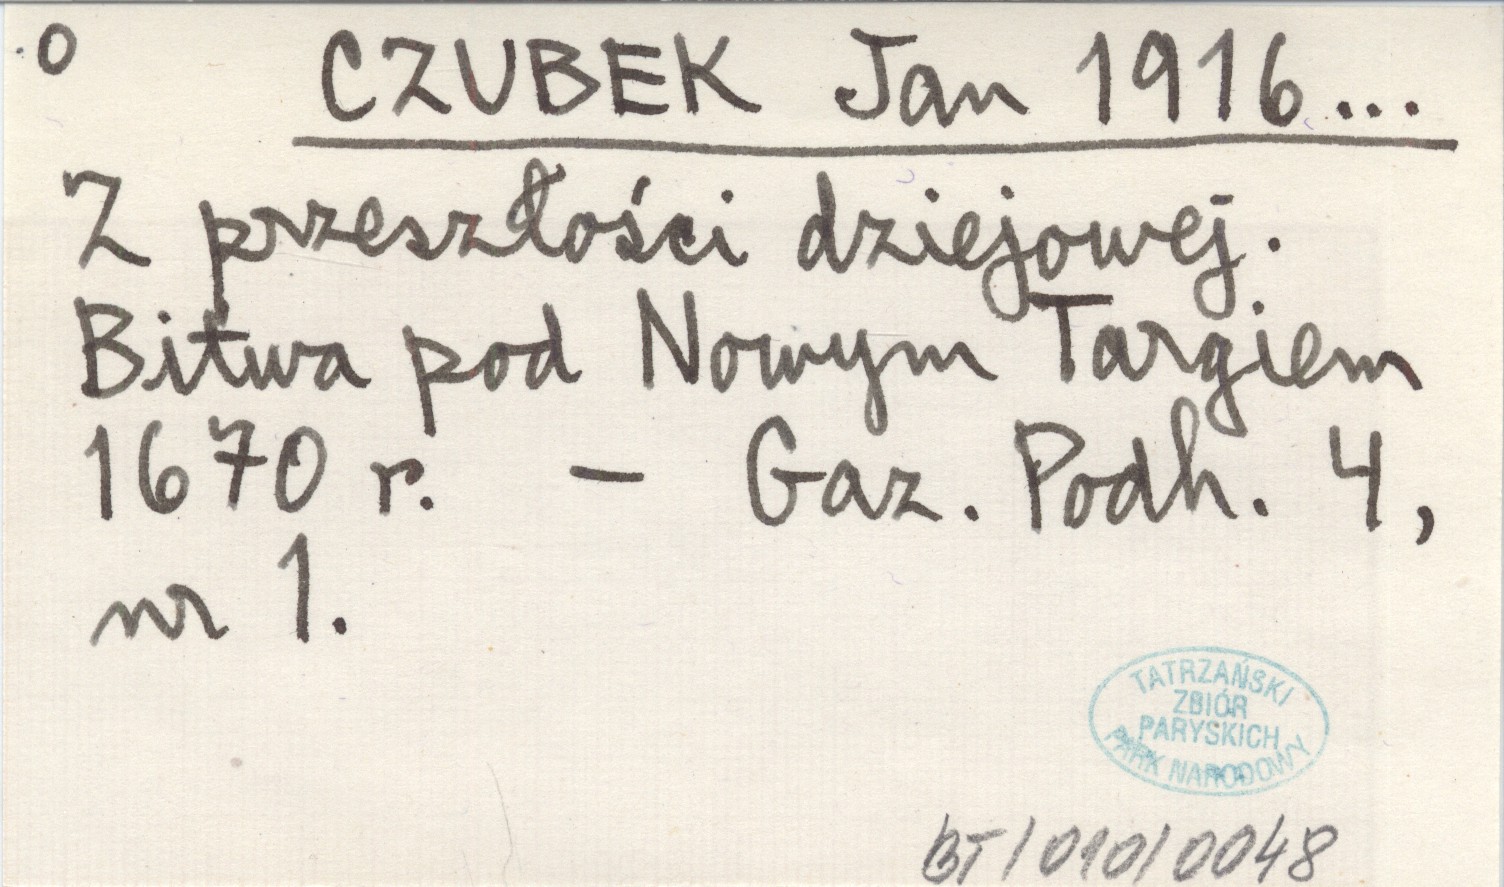 O
CZUBEK Jan 1916...
Z przeszłości dziejowej.
Bitwa pod Nowym Targiem
1670 r. – Gaz. Podh. 4,
nr 1.
TATRZAŃSKI
ZBIÓR
PARYSKICH
PARK NARODOWY
BT/010/0048